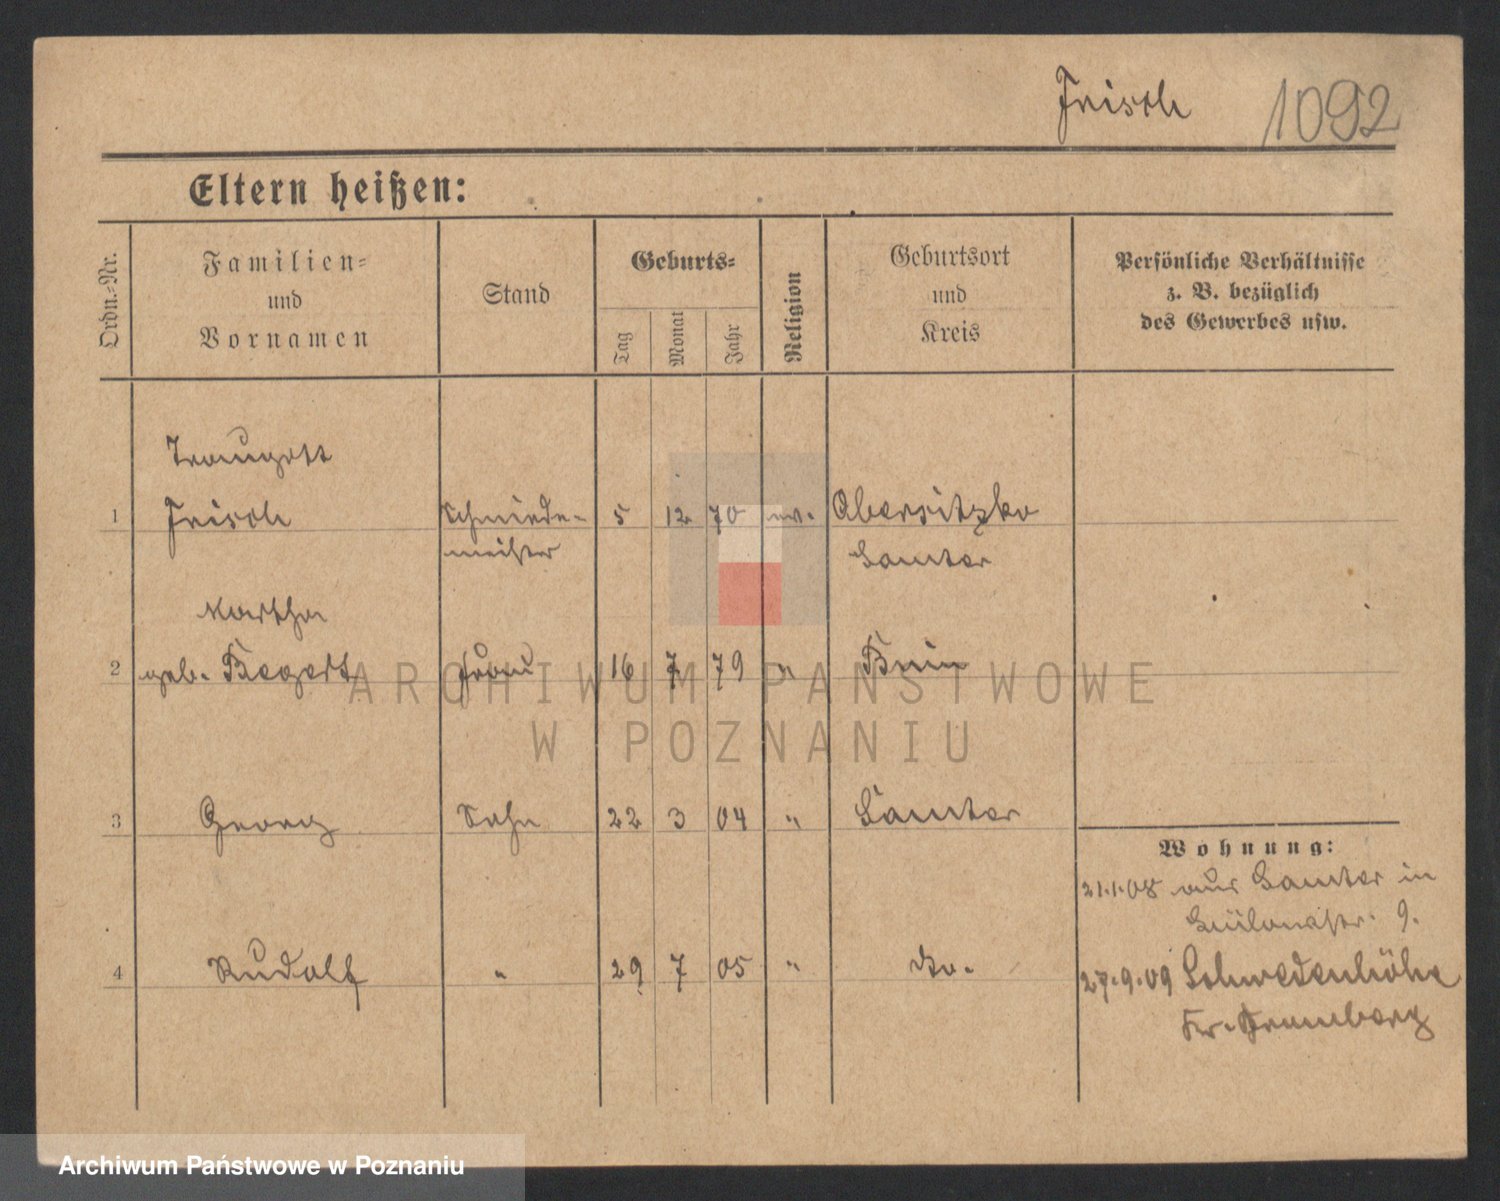 Frisch 1092
Eltern heißen:
Ordn.-Nr.
Familien-
und
Vornamen
Stand
Geburts-
Tag
Monat
Jahr
Religion
Geburtsort
und
Kreis
Persönliche Verhältnisse
z. B. bezüglich
des Gewerbes usw.
Traugott
1 Frisch Schmiede- 5 12 70 ev. Obersitzko
meister Samter
Martha
2 geb. Begert Frau 16 7 79 " Bnin
3 Georg Sohn 22 3 04 " Samter
Wohnung:
21.1.08 aus Samter in
9.
4 Rudolf " 29 7 05 " do.
27.9.09 Schwedenhöhe
Kr. Bromberg
ARCHIWUM PAŃSTWOWE
W POZNANIU
Archiwum Państwowe w Poznaniu